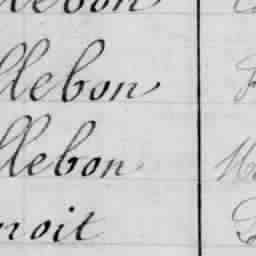 llebon
llebon
llebon
noit